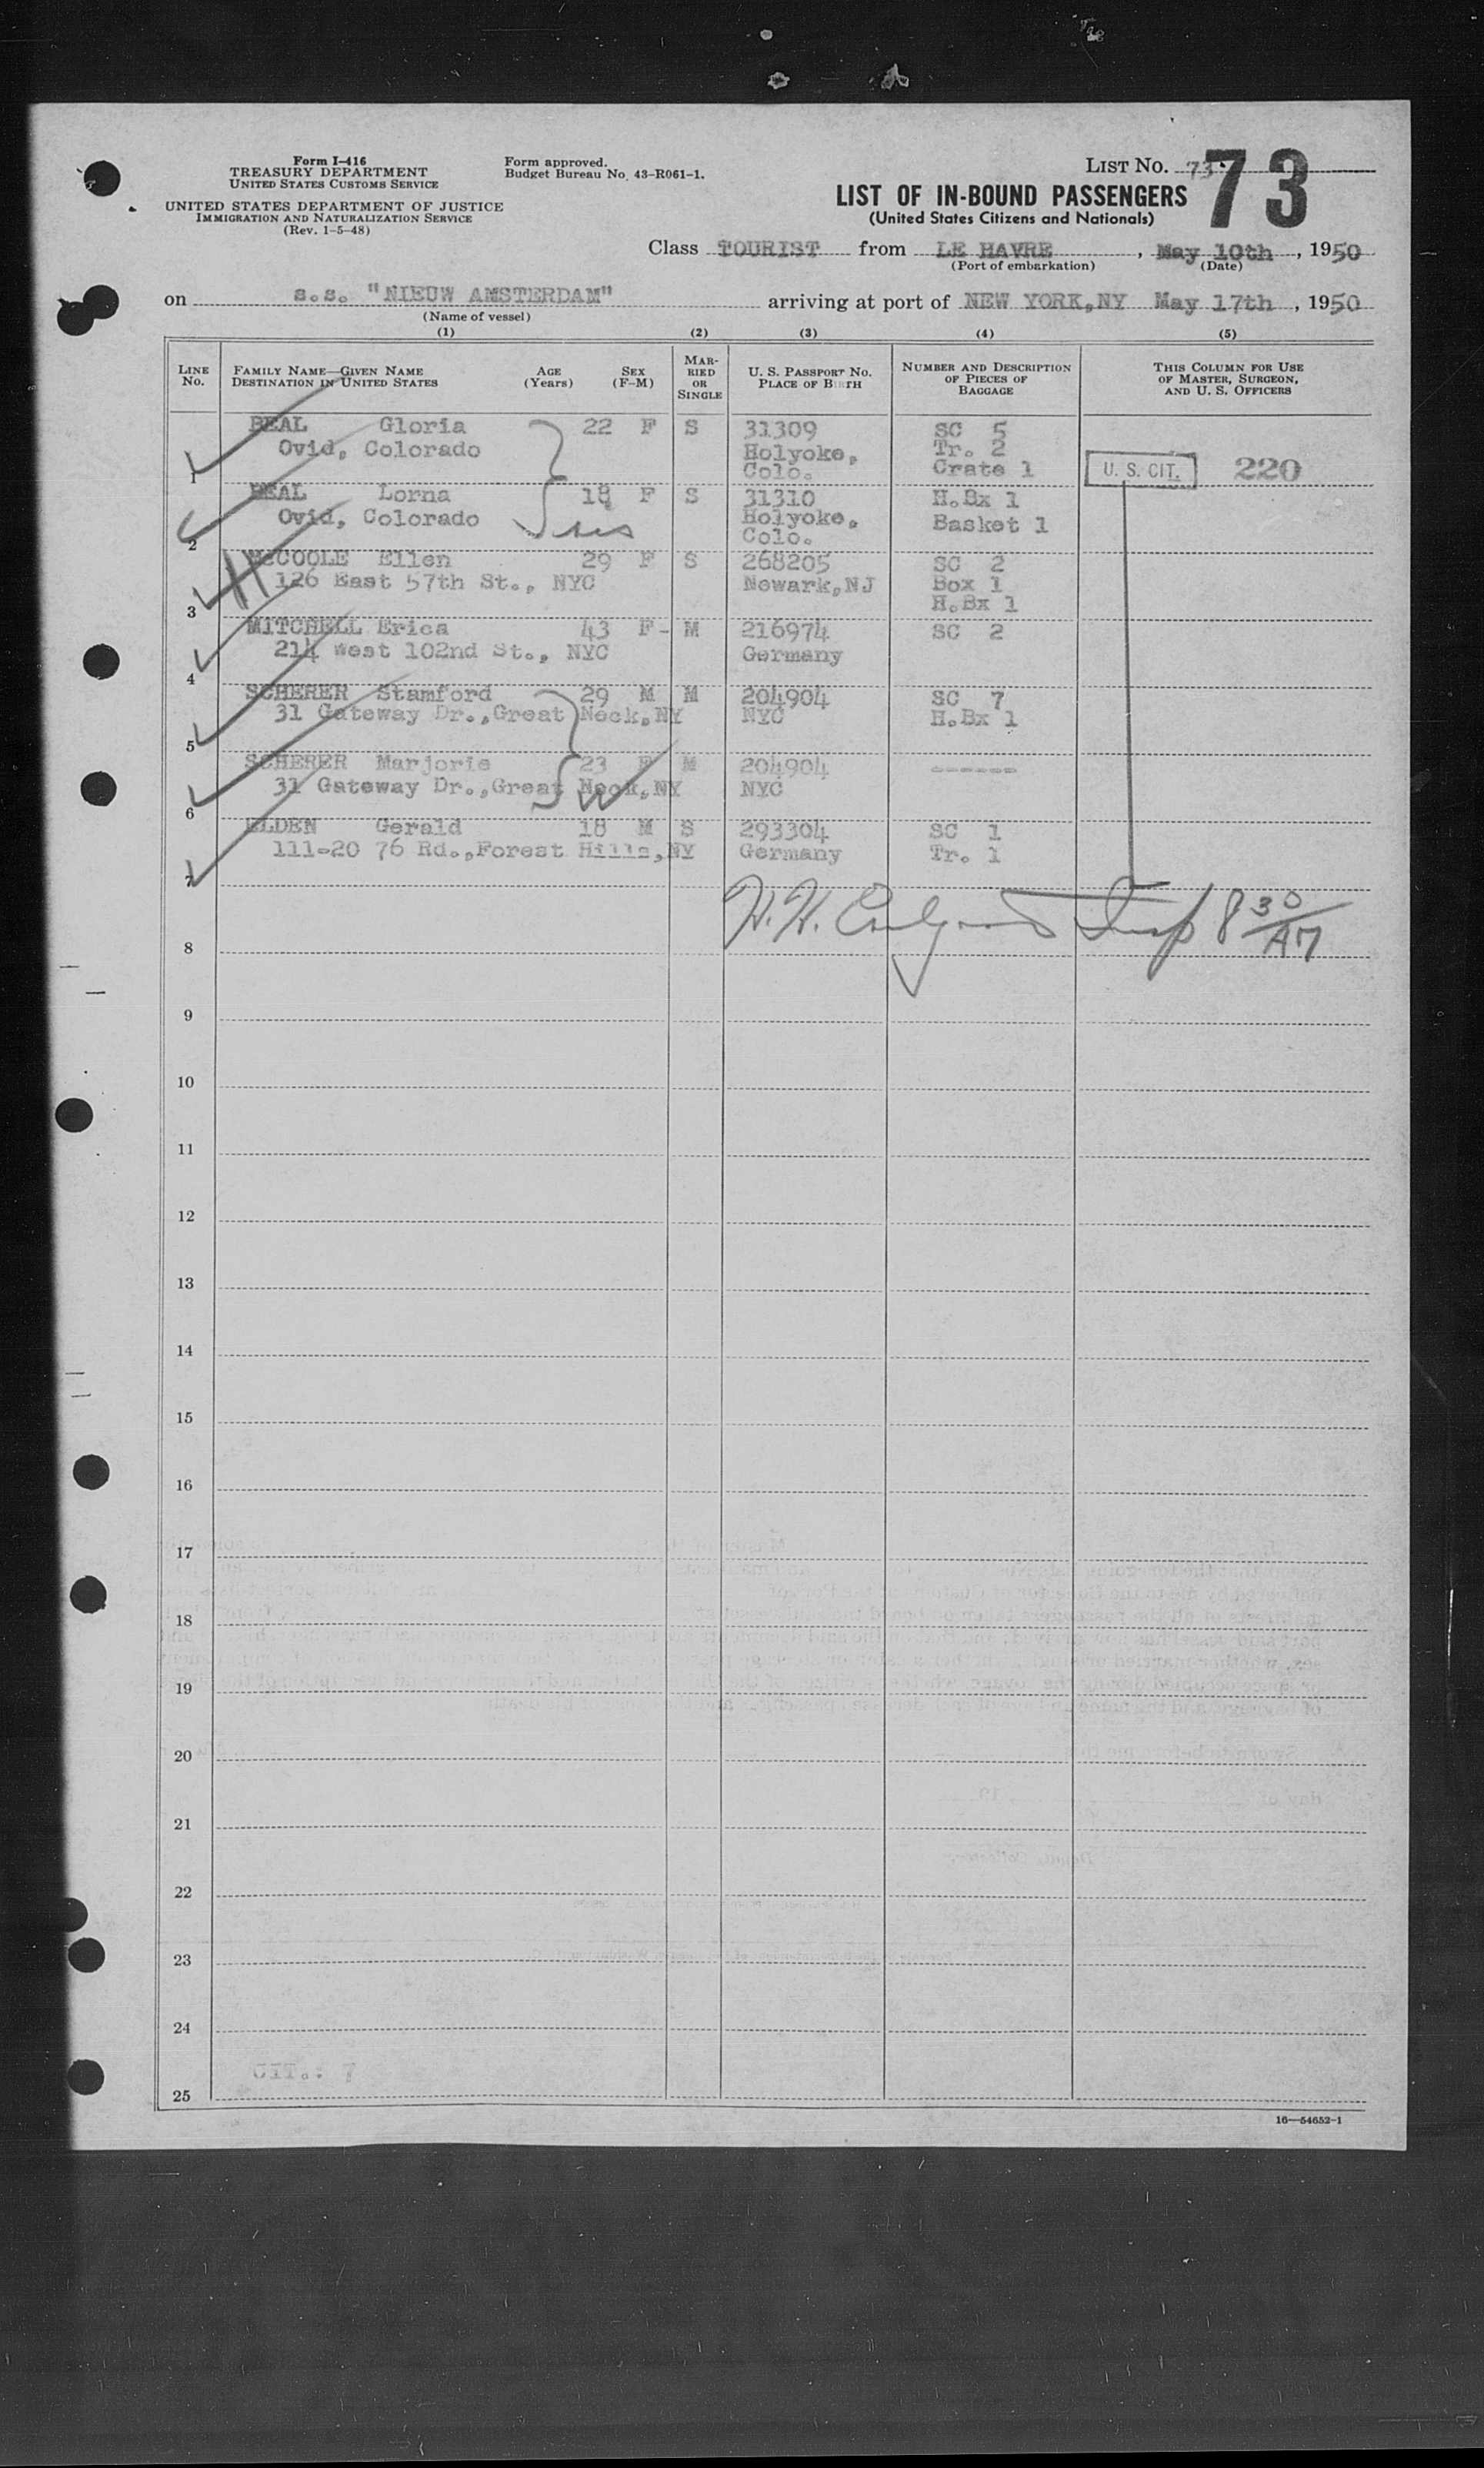 Form I-416
TREASURY DEPARTMENT
UNITED STATES CUSTOMS SERVICE
UNITED STATES DEPARTMENT OF JUSTICE
IMMIGRATION AND NATURALIZATION SERVICE
(Rev. 1-5-48)
Form approved.
Budget Bureau No. 43-R061-1.
LIST NO. 73
73
LIST OF IN-BOUND PASSENGERS
(United States Citizens and Nationals)
Class TOURIST from LE HAVRE, May 10th, 1950
(Port of embarkation) (Date)
on s.s. "NIEUW AMSTERDAM" arriving at port of NEW YORK,NY May 17th, 1950
(Name of vessel)
(1) (2) (3) (4) (5)
LINE No. FAMILY NAME—GIVEN NAME DESTINATION IN UNITED STATES AGE (Years) SEX (F-M) MARRIED OR SINGLE U. S. PASSPORT NO. PLACE OF BIRTH NUMBER AND DESCRIPTION OF PIECES OF BAGGAGE THIS COLUMN FOR USE OF MASTER, SURGEON, AND U. S. OFFICERS
BEAL Gloria 22 F S 31309 SC 5
Ovid, Colorado Holyoke, Tr. 2
1 Colo. Crate 1 U. S. CIT. 220
BEAL Lorna 18 F S 31310 H.Bx 1
Ovid, Colorado Holyoke, Basket 1
2 sis Colo.
McCOOLE Ellen 29 F S 268205 SC 2
126 East 57th St., NYC Newark,NJ Box 1
3 H.Bx 1
MITCHELL Erica 43 F- M 216974 SC 2
214 West 102nd St., NYC Germany
4
SCHERER Stamford 29 M M 204904 SC 7
31 Gateway Dr.,Great Neck,NY NYC H.Bx 1
5
SCHERER Marjorie 23 F M 204904 ------
31 Gateway Dr.,Great Neck,NY NYC
6 W
ELDEN Gerald 18 M S 293304 SC 1
111-20 76 Rd.,Forest Hills,NY Germany Tr. 1
7
H. H. Insp 8 30/AM
8
9
10
11
12
13
14
15
16
17
18
19
20
21
22
23
24
CIT.: 7
25
16—54652-1